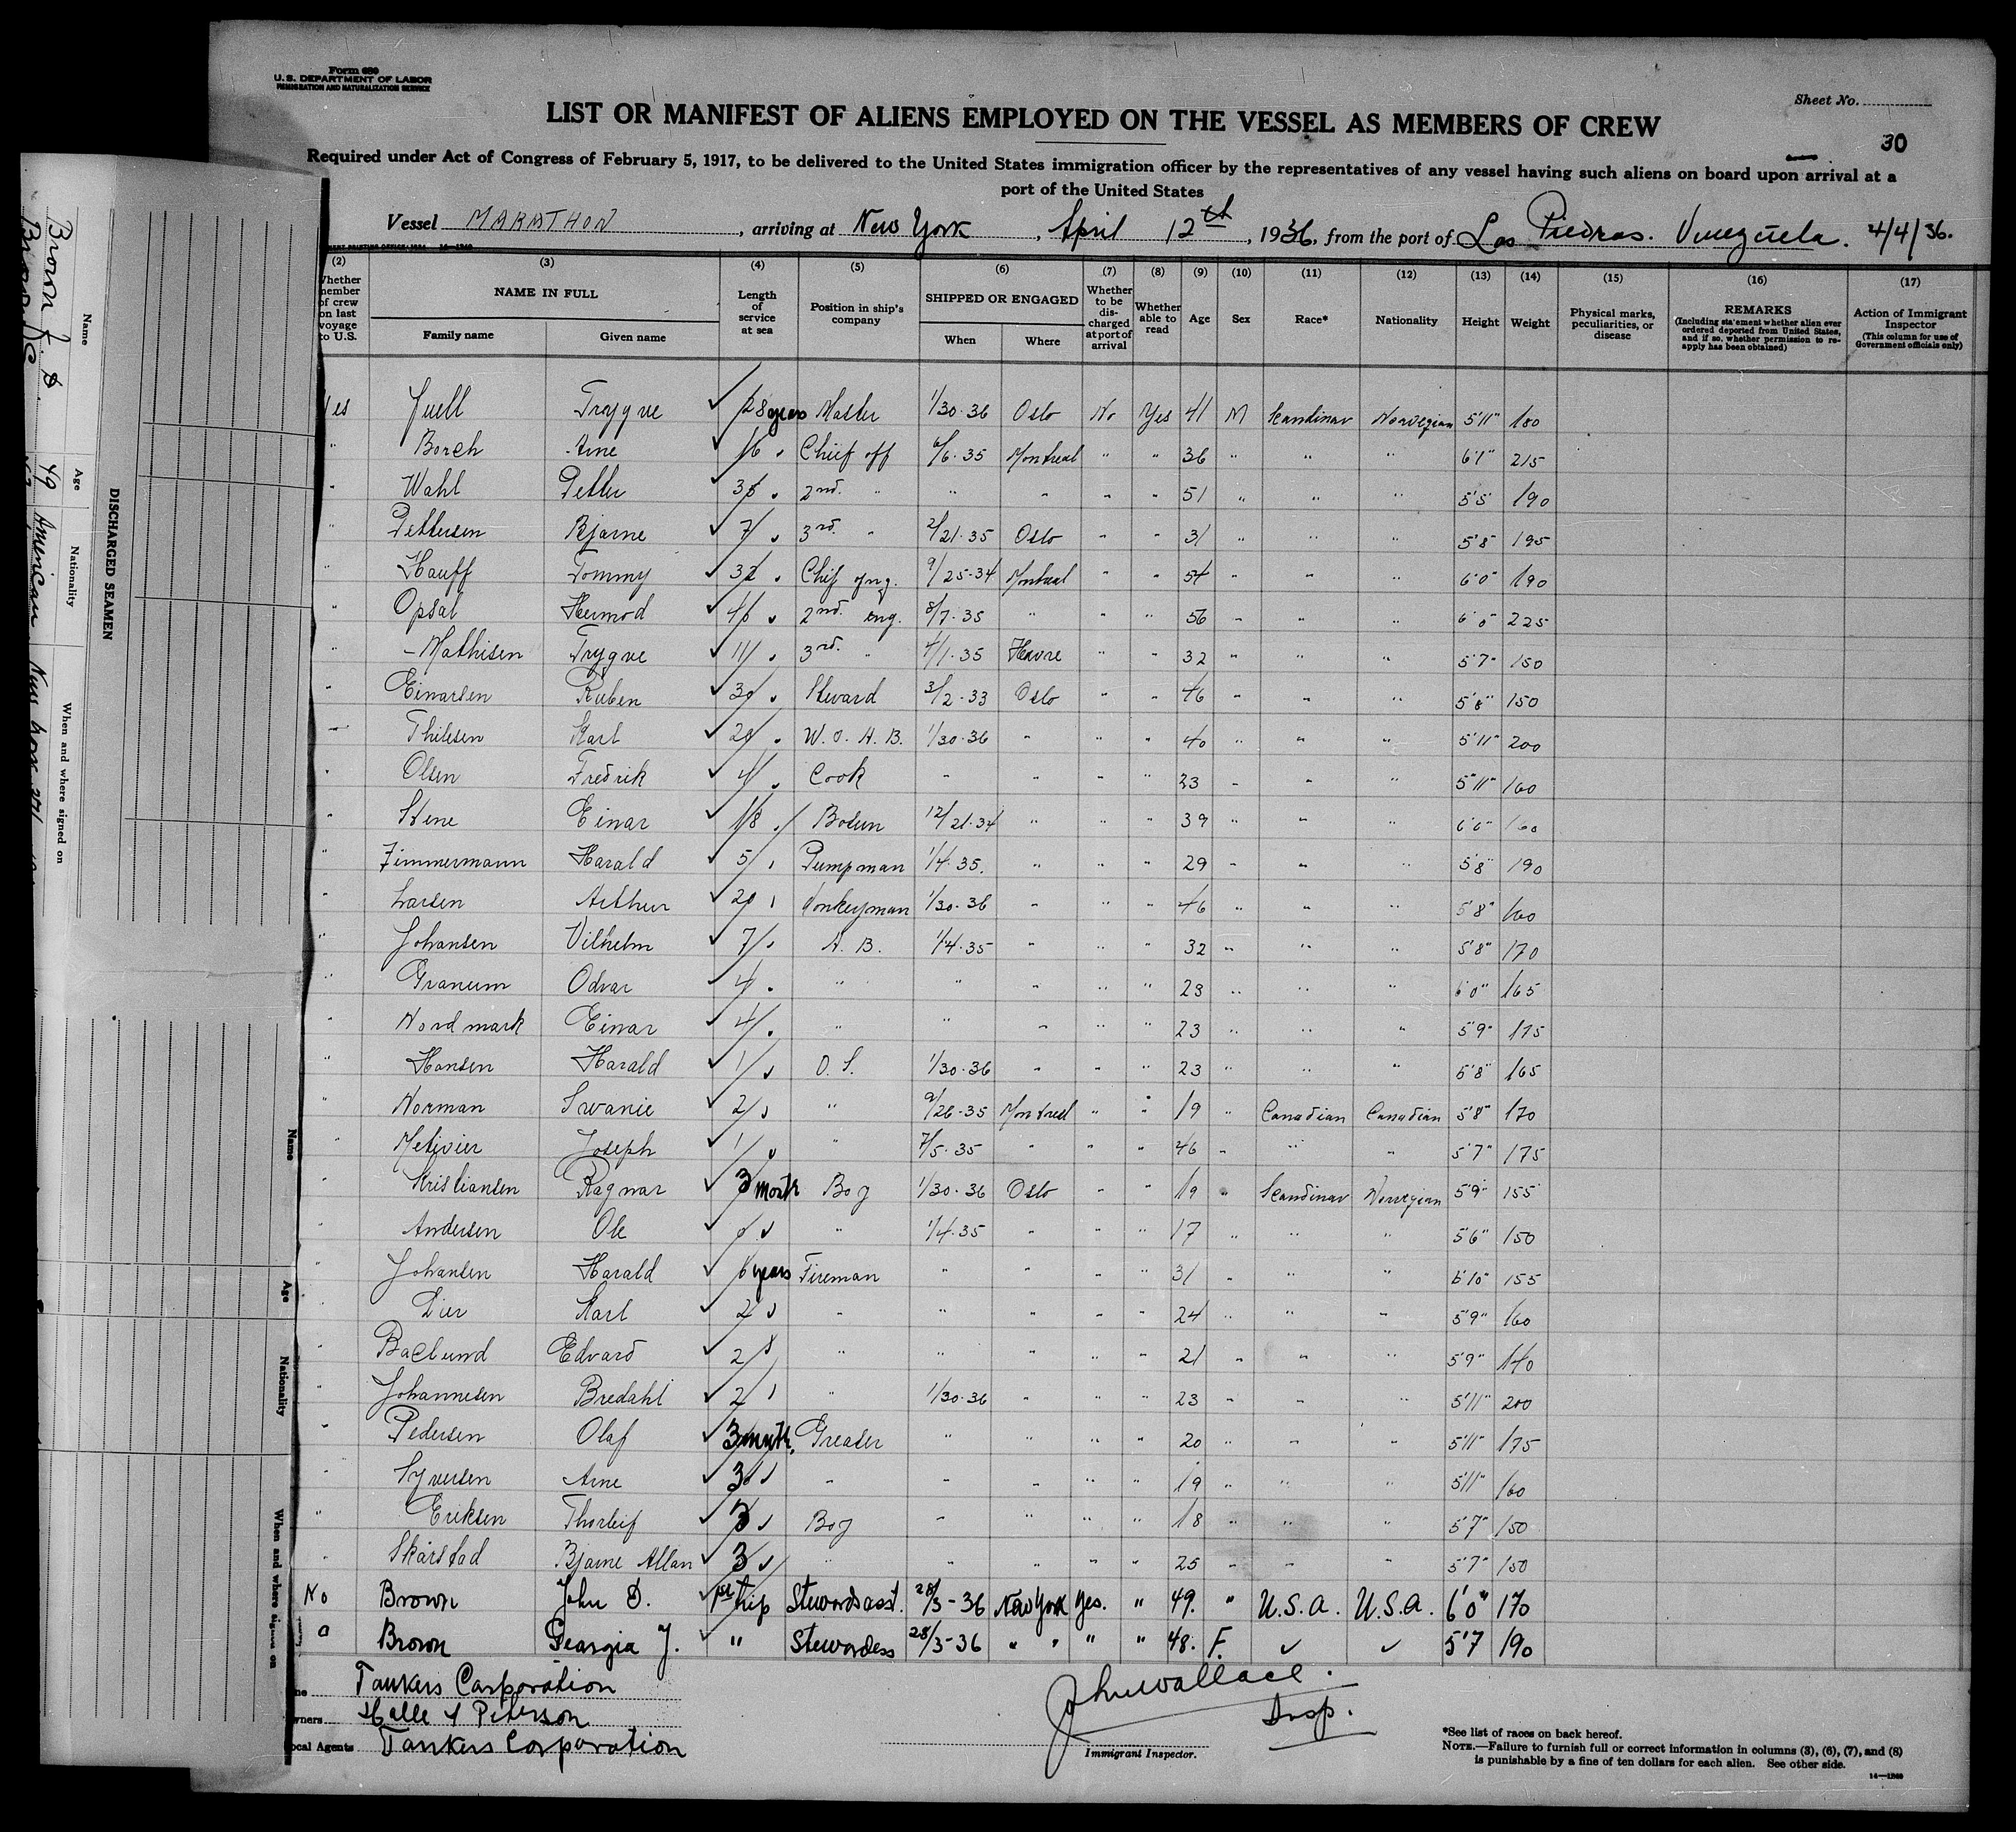 Form 680
U.S. DEPARTMENT OF LABOR
IMMIGRATION AND NATURALIZATION SERVICE
Sheet No.
30
LIST OR MANIFEST OF ALIENS EMPLOYED ON THE VESSEL AS MEMBERS OF CREW
Required under Act of Congress of February 5, 1917, to be delivered to the United States immigration officer by the representatives of any vessel having such aliens on board upon arrival at a
port of the United States
Vessel MARATHON, arriving at New York, April 12th, 1936, from the port of Las Piedras. Venezuela. 4/4/36.
(2) (3) (4) (5) (6) (7) (8) (9) (10) (11) (12) (13) (14) (15) (16) (17)
Whether member of crew on last voyage to U.S. NAME IN FULL Family name Given name Length of service at sea Position in ship's company SHIPPED OR ENGAGED When Where Whether to be discharged at port of arrival Whether able to read Age Sex Race* Nationality Height Weight Physical marks, peculiarities, or disease REMARKS (Including statement whether alien ever ordered deported from United States, and if so, whether permission to reapply has been obtained) Action of Immigrant Inspector (This column for use of Government officials only)
Yes Juell Trygve 28 years Master 1/30-36 Oslo No Yes 41 M Scandinav Norwegian 5'11" 180
" Borch Arne 16 " Chief off 6/6-35 Montreal " " 36 " " " 6'1" 215
" Wahl Petter 35 " 2nd. " " " " " 51 " " " 5'5" 190
" Pettersen Bjarne 7 " 3rd. " 2/21-35 Oslo " " 31 " " " 5'8" 195
" Hauff Tommy 32 " Chif eng. 9/25-34 Montreal " " 54 " " " 6'0" 190
" Opsal Hermod 40 " 2nd. eng. 8/7-35 " " " 56 " " " 6'0" 225
" Mathisen Trygve 11 " 3rd. " 4/1-35 Havre " " 32 " " " 5'7" 150
" Einarsen Ruben 30 " Steward 3/2-33 Oslo " " 46 " " " 5'8" 150
" Thilesen Karl 20 " W.O. A.B. 1/30-36 " " " 40 " " " 5'11" 200
" Olsen Fredrik 4 " Cook " " " " 23 " " " 5'11" 160
" Stene Einar 18 " Bosun 12/21-34 " " " 39 " " " 6'6" 160
" Zimmermann Harald 5 " Pumpman 1/4-35. " " " 29 " " " 5'8" 190
" Larsen Arthur 20 " Donkeyman 1/30-36 " " " 46 " " " 5'8" 160
" Johansen Vilhelm 7 " A. B. 1/4-35 " " " 32 " " " 5'8" 170
" Granum Odvar 4 " " " " " " 23 " " " 6'0" 165
" Nordmark Einar 4 " " " " " " 23 " " " 5'9" 175
" Hansen Harald 1 " O. S. 1/30-36 " " " 23 " " " 5'8" 165
" Norman Swanie 2 " " 9/26-35 Montreal " " 19 " Canadian Canadian 5'8" 170
" Metivier Joseph 1 " " 7/5-35 " " " 46 " " " 5'7" 175
" Kristiansen Ragnar 3 month Boy 1/30-36 Oslo " " 19 " Scandinav Norwegian 5'9" 155
" Andersen Ole " " 1/4-35 " " " 17 " " " 5'6" 150
" Johansen Harald 6 years Fireman " " " " 31 " " " 5'10" 155
" Lier Karl 2 " " " " " " 24 " " " 5'9" 160
" Baclund Edvard 2 " " " " " " 21 " " " 5'9" 140
" Johannesen Bredahl 2 " " 1/30-36 " " " 23 " " " 5'11" 200
" Pedersen Olaf 3 month. Greaser " " " " 20 " " " 5'11" 175
" Syversen Arne 3 " " " " " " 19 " " " 5'11" 160
" Eriksen Thorleif 3 " Boy " " " " 18 " " " 5'7" 150
" Skårstad Bjarne Allan 3 " " " " " " 25 " " " 5'7" 150
No Brown John D. 1st trip Stewardsasst. 28/3-36 New York Yes. " 49. " U.S.A. U.S.A. 6'0" 170
" Brown Georgia J. " Stewardess 28/3-36 " " " " 48. F. 5'7 190
Tankers Corporation
Owners Halle & Peterson
Local Agents Tankers Corporation
John Wallace.
Insp.
Immigrant Inspector.
*See list of races on back hereof.
NOTE.—Failure to furnish full or correct information in columns (3), (6), (7), and (8)
is punishable by a fine of ten dollars for each alien. See other side.
14—1240
DISCHARGED SEAMEN
Name Age Nationality When and where signed on
Brown J. D. 49 American New York
Name Age Nationality When and where signed on